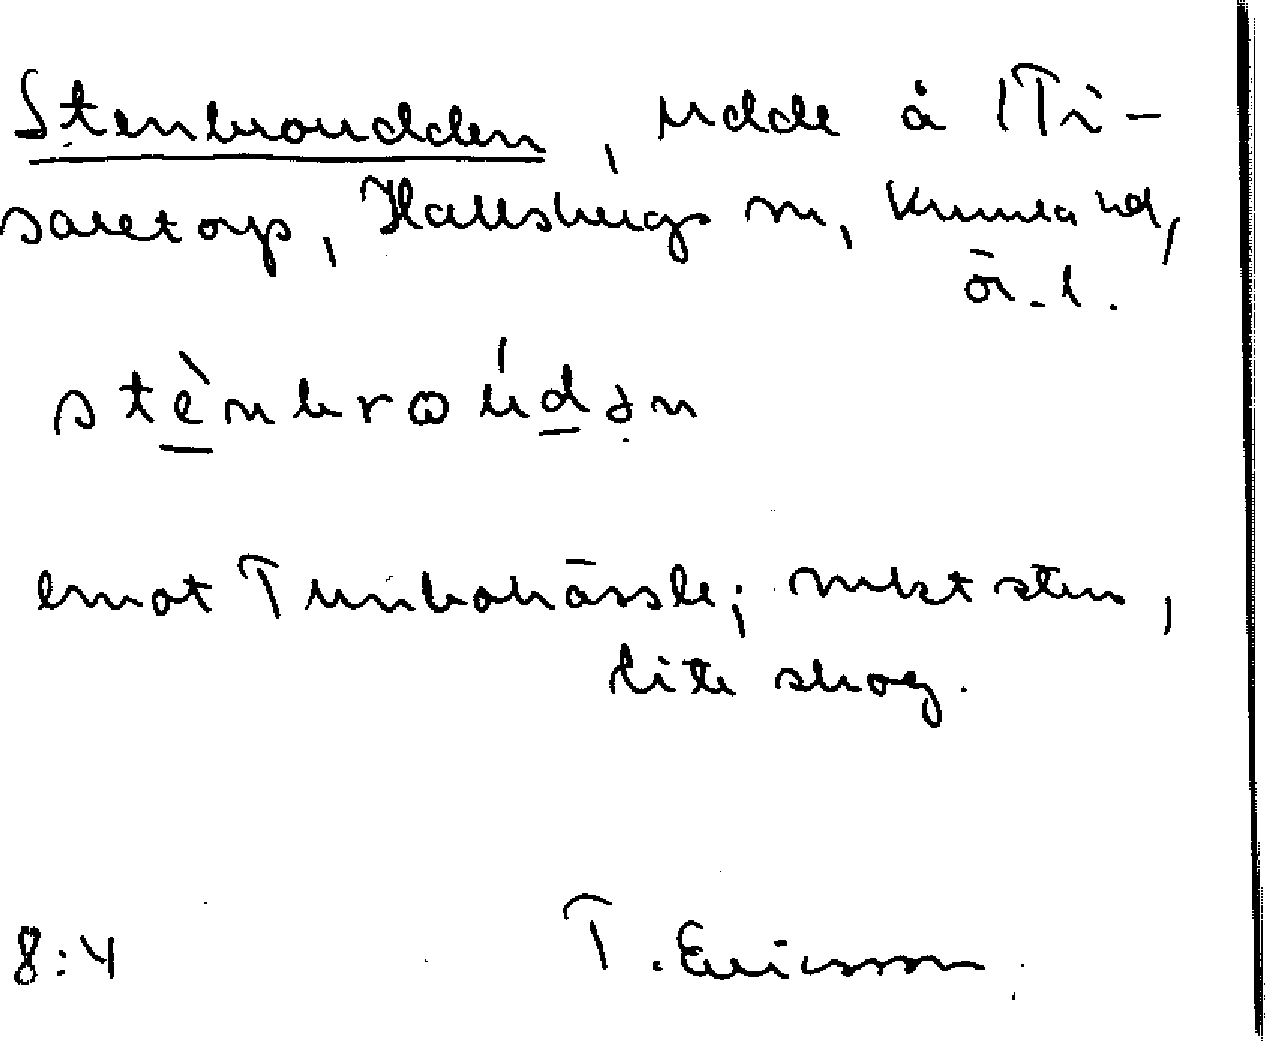 Stenbroudden, udde å 1 Ti-
saretorp, Hallsbergs sn, Kumla hd,
ör. l.
stènbroúdən
emot Tunbohässle; mkt sten,
lite skog.
8:4 T. Ericsson